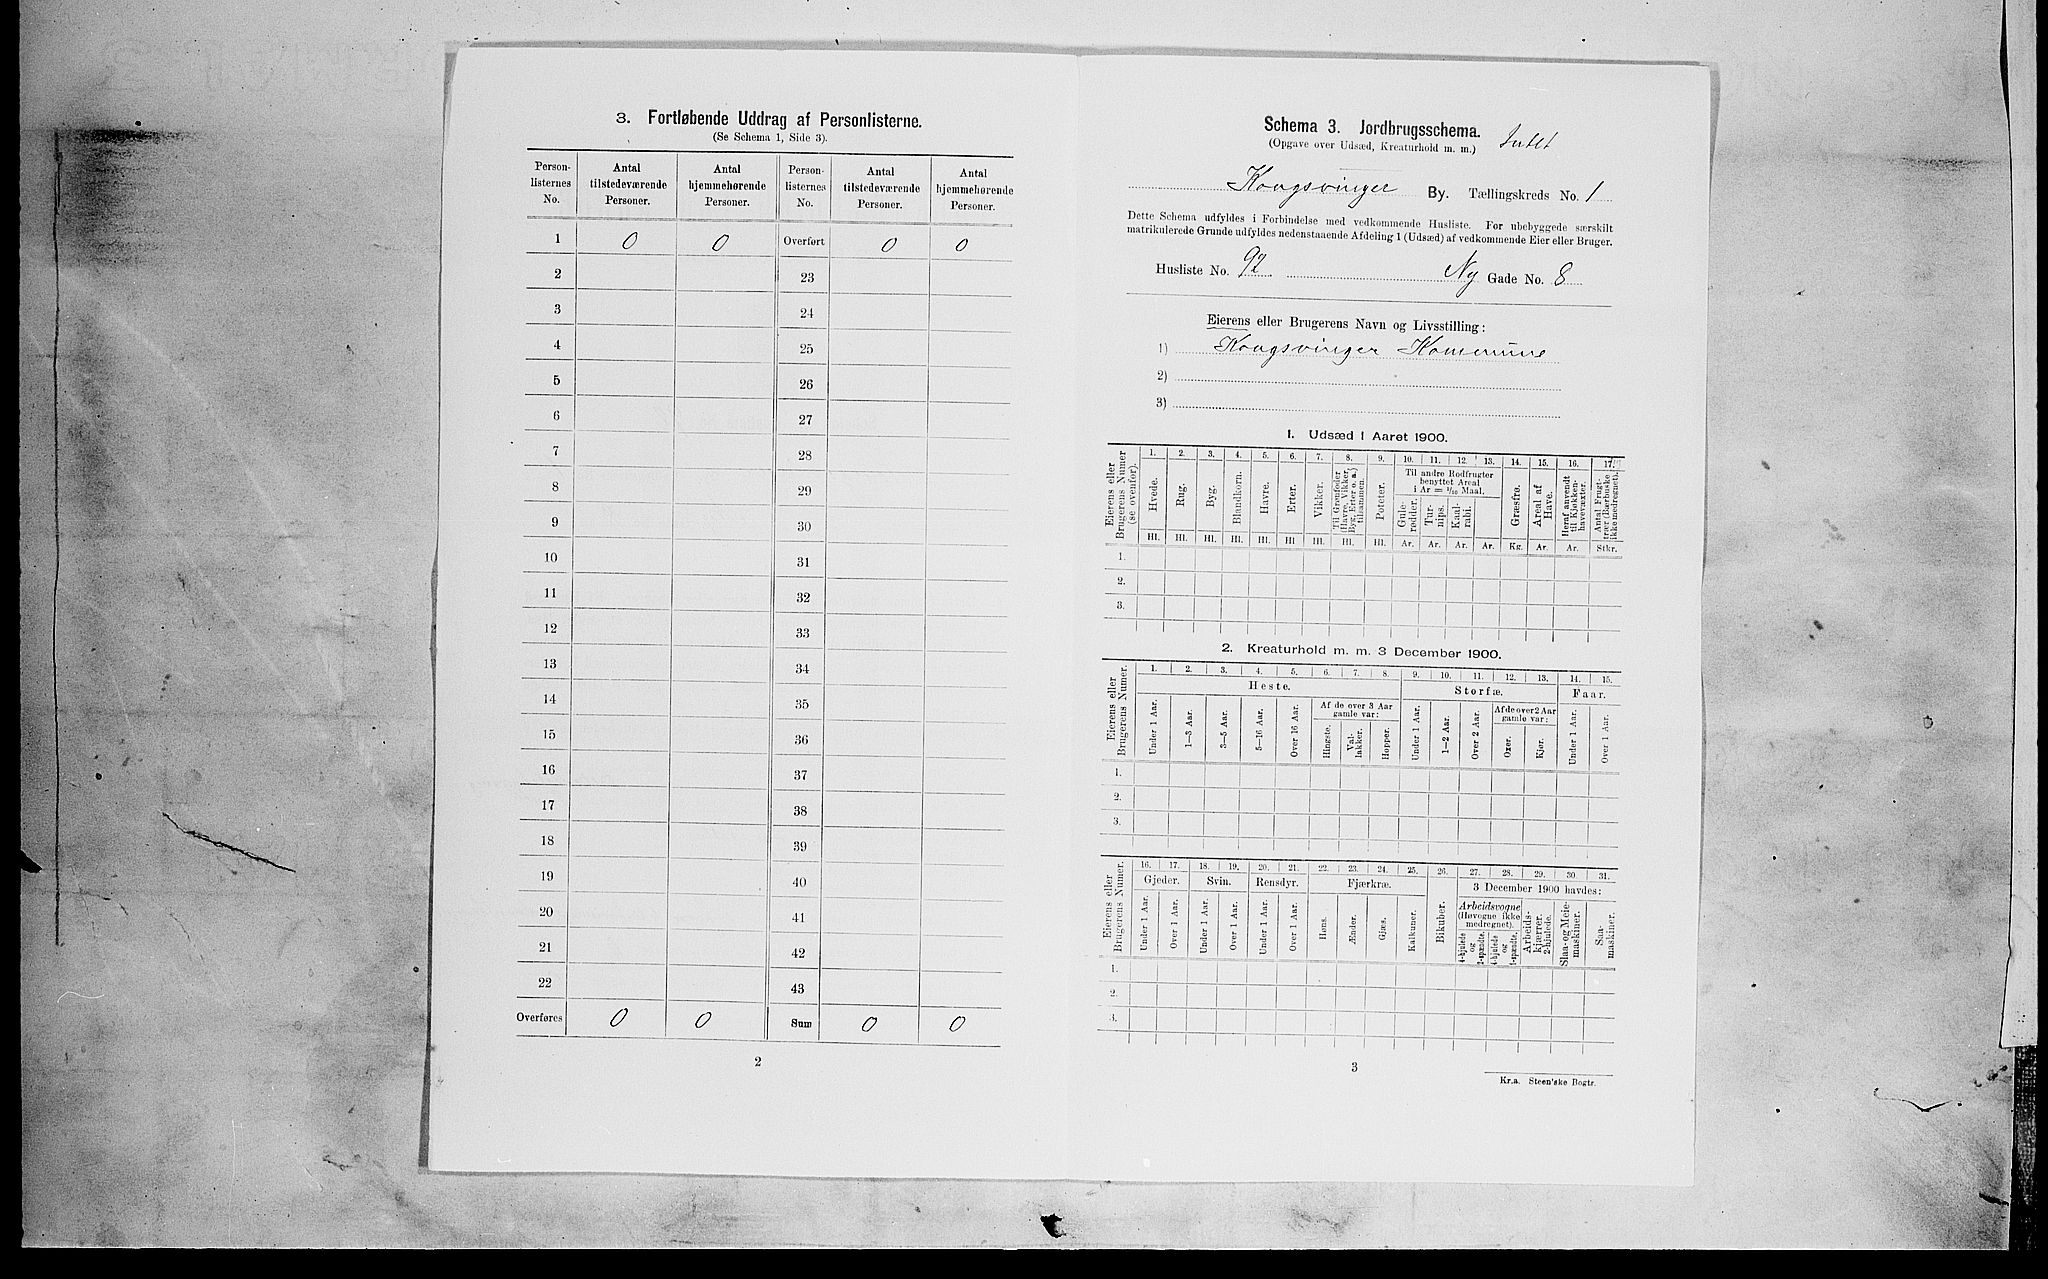 3. Fortløbende Uddrag af Personlisterne.
(Se Schema 1, Side 3).
Person-listernes No. | Antal tilstedeværende Personer. | Antal hjemmehørende Personer. | Person-listernes No. | Antal tilstedeværende Personer. | Antal hjemmehørende Personer.
1 | 0 | 0 | Overført | 0 | 0
2 | 23
3 | 24
4 | 25
5 | 26
6 | 27
7 | 28
8 | 29
9 | 30
10 | 31
11 | 32
12 | 33
13 | 34
14 | 35
15 | 36
16 | 37
17 | 38
18 | 39
19 | 40
20 | 41
21 | 42
22 | 43
Overføres | 0 | 0 | Sum | 0 | 0
2
Schema 3. Jordbrugsschema. Intet
(Opgave over Udsæd, Kreaturhold m. m.)
Kongsvinger By. Tællingskreds No. 1
Dette Schema udfyldes i Forbindelse med vedkommende Husliste. For ubebyggede særskilt
matrikulerede Grunde udfyldes nedenstaaende Afdeling 1 (Udsæd) af vedkommende Eier eller Bruger.
Husliste No. 92 Ny Gade No. 8
Eierens eller Brugerens Navn og Livsstilling:
1) Kongsvinger Kommune
2)
3)
1. Udsæd i Aaret 1900.
Eierens eller Brugerens Numer (se ovenfor).
1. | 2. | 3. | 4. | 5. | 6. | 7. | 8. | 9. | 10. | 11. | 12. | 13. | 14. | 15. | 16. | 17.
Til andre Rodfrugter benyttet Areal i Ar = 1/10 Maal.
Hvede. | Rug. | Byg. | Blandkorn. | Havre. | Erter. | Vikker. | Til Grønfoder (Havre, Vikker, Byg, Erter o. a.) tilsammen. | Poteter. | Gule-rødder. | Tur-nips. | Kaal-rabi. | | Græsfrø. | Areal af Have. | Heraf anvendt til Kjøkken-havevæxter. | Antal Frugt-trær (Bærbuske ikke medregnet).
Hl. | Hl. | Hl. | Hl. | Hl. | Hl. | Hl. | Hl. | Hl. | Ar. | Ar. | Ar. | Ar. | Kg. | Ar. | Ar. | Stkr.
1.
2.
3.
2. Kreaturhold m. m. 3 December 1900.
Eierens eller Brugerens Numer.
1. | 2. | 3. | 4. | 5. | 6. | 7. | 8. | 9. | 10. | 11. | 12. | 13. | 14. | 15.
Heste. | Storfæ. | Faar.
Af de over 3 Aar gamle var: | Af de over 2 Aar gamle var:
Under 1 Aar. | 1—3 Aar. | 3—5 Aar. | 5—16 Aar. | Over 16 Aar. | Hingste. | Val-lakker. | Hopper. | Under 1 Aar. | 1—2 Aar. | Over 2 Aar. | Oxer. | Kjør. | Under 1 Aar. | Over 1 Aar.
1.
2.
3.
Eierens eller Brugerens Numer.
16. | 17. | 18. | 19. | 20. | 21. | 22. | 23. | 24. | 25. | 26. | 27. | 28. | 29. | 30. | 31.
Gjeder. | Svin. | Rensdyr. | Fjærkræ. | Bikuber. | 3 December 1900 havdes:
Arbeidsvogne (Høvogne ikke medregnet).
Under 1 Aar. | Over 1 Aar. | Under 1 Aar. | Over 1 Aar. | Under 1 Aar. | Over 1 Aar. | Høns. | Ænder. | Gjæs. | Kalkuner. | 4-hjulede og 2-spændte. | 4-hjulede og 1-spændte. | Arbeids-kjærrer, 2-hjulede. | Slaa- og Meie-maskiner. | Saa-maskiner.
1.
2.
3.
3
Kr.a. Steen'ske Bogtr.